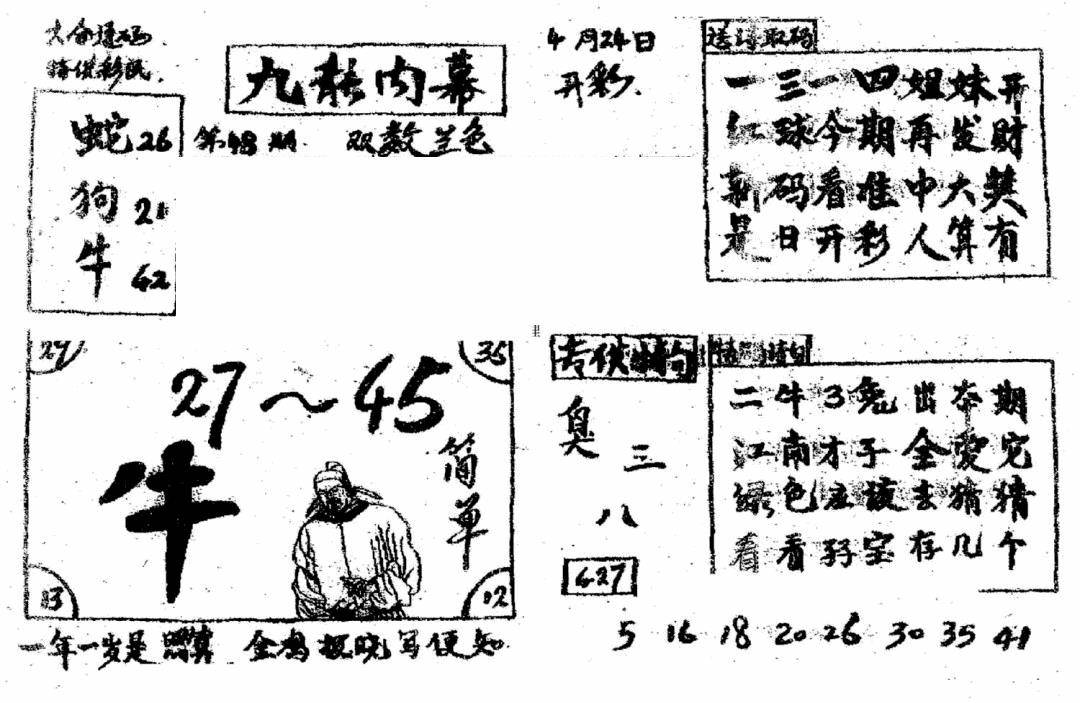 特供彩民.
蛇26
狗21
牛42
九龙内幕
第48期 双数兰色
4月24日
开彩.
送诗取码
一三一四姐妹开
仁球今期再发财
新码看准中大奖
是日开彩人算有
27
35
27~45
牛
简单
13
12
一年一岁是 金鸡报晓写便知
专供特句
臭
三
八
627
二牛3兔出本期
江南才子全爱它
绿色应该去猜猜
看看孖宝存几个
5 16 18 20 26 30 35 41